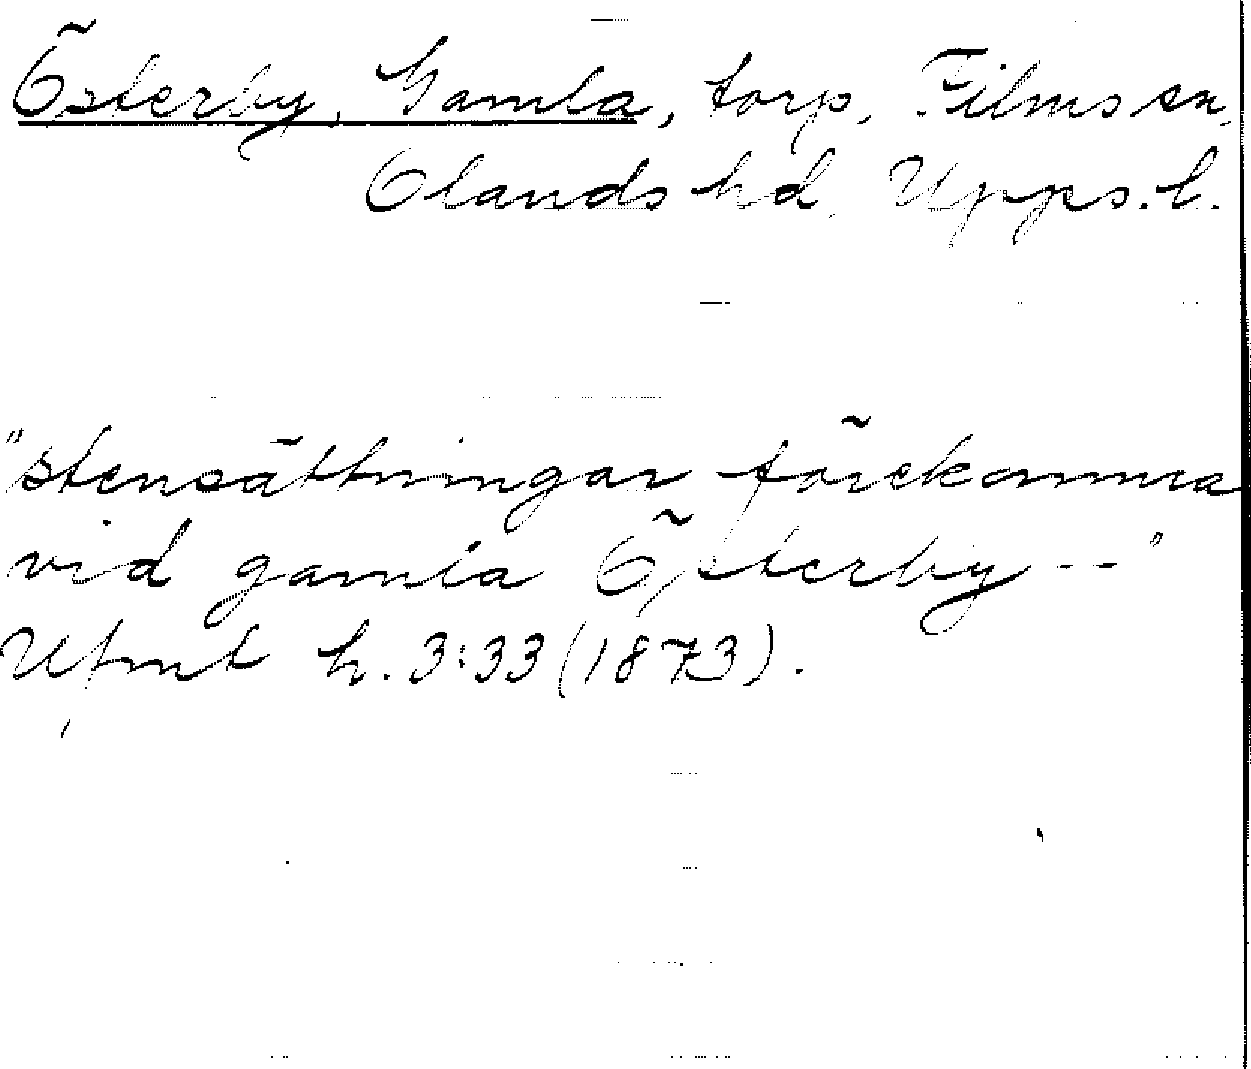 Österby, Gamla, torp, Films sn,
Olands hd, Upps. l.
"stensättningar förekomma
vid gamla Österby --"
Ufmt h. 3:33 (1873).